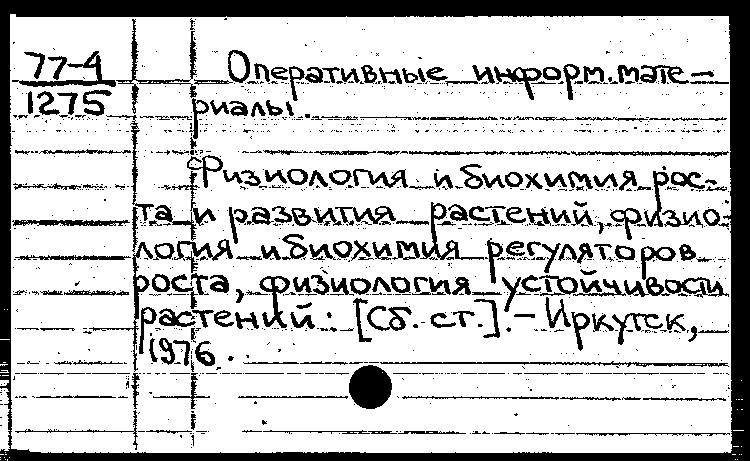 77-4
1275
Оперативные информ. мате-
риалы.
Физиология и биохимия рос-
та и развития растений, физио-
логия и биохимия регуляторов
роста, физиология устойчивости
растений: [Сб. ст.]. – Иркутск,
1976.